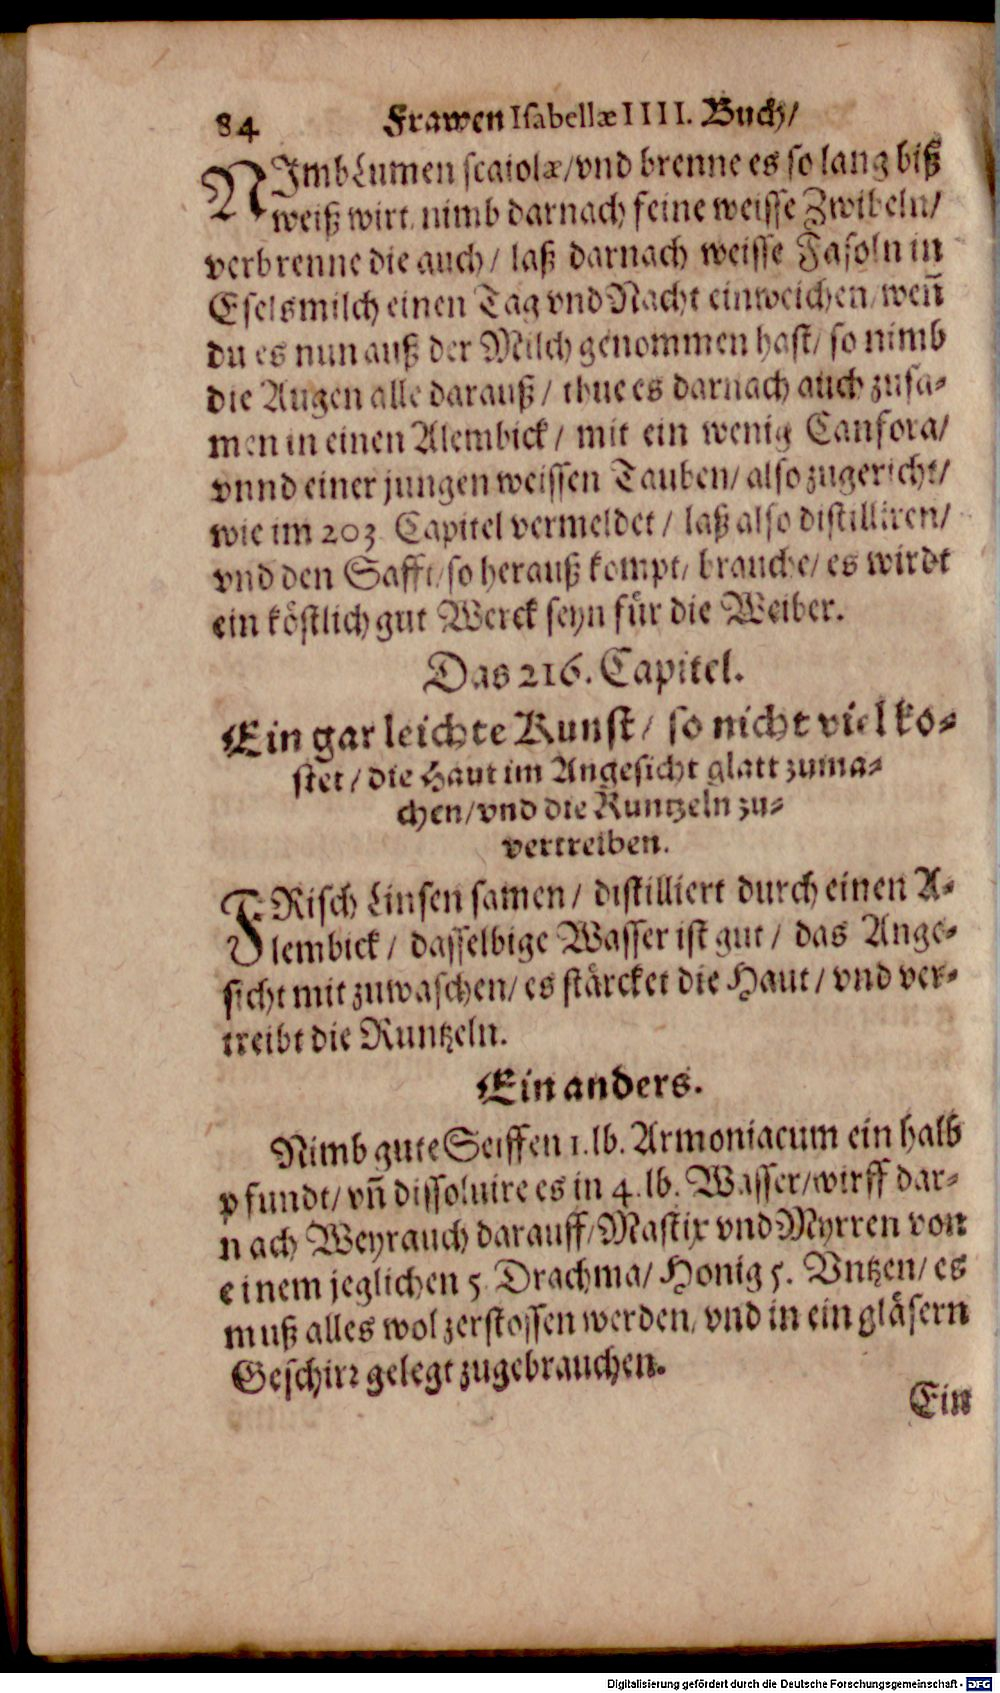 84 Frawen Isabellæ IIII. Buch/
NImb Lumen scaiolæ/ vnd brenne es so lang biß
weiß wirt, nimb darnach feine weisse Zwibeln/
verbrenne die auch/ laß darnach weisse Fasoln in
Eselsmilch einen Tag vnd Nacht einweichen/ weñ
du es nun auß der Milch genommen hast/ so nimb
die Augen alle darauß/ thue es darnach auch zusa-
men in einen Alembick/ mit ein wenig Canfora/
vnnd einer jungen weissen Tauben/ also zugericht/
wie im 203 Capitel vermeldet/ laß also distilliren/
vnd den Safft/ so herauß kompt/ brauche/ es wirdt
ein köstlich gut Werck seyn für die Weiber.
Das 216. Capitel.
Ein gar leichte Kunst/ so nicht viel ko-
stet/ die Haut im Angesicht glatt zuma-
chen/ vnd die Runtzeln zu-
vertreiben.
FRisch Linsen samen/ distilliert durch einen A-
lembick/ dasselbige Wasser ist gut/ das Ange-
sicht mit zuwaschen/ es stärcket die Haut/ vnd ver-
treibt die Runtzeln.
Ein anders.
Nimb gute Seiffen 1. lb. Armoniacum ein halb
pfundt/ vñ dissoluire es in 4. lb. Wasser/ wirff dar-
nach Weyrauch darauff/ Mastix vnd Myrren von
einem jeglichen 5 Drachma/ Honig 5. Vntzen/ es
muß alles wol zerstossen werden/ vnd in ein gläsern
Geschirr gelegt zugebrauchen.
Ein
Digitalisierung gefördert durch die Deutsche Forschungsgemeinschaft - DFG